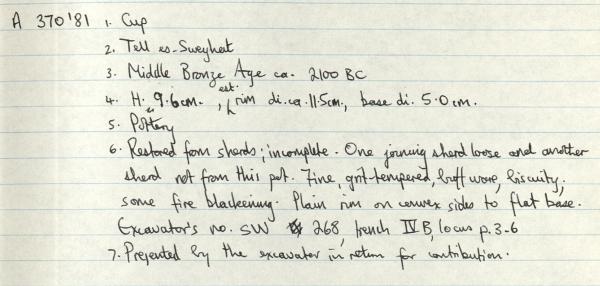 A 370'81 1. Cup
2. Tell es-Sweyhat
3. Middle Bronze Age ca. 2100 BC
4. H. 9.6cm., est. rim di. ca. 11.5cm., base di. 5.0cm.
5. Pottery
6. Restored from sherds; incomplete. One joining sherd loose and another
sherd not from this pot. Fine, grit-tempered, buff ware, biscuity,
some fire blackening. Plain rim on convex sides to flat base.
Excavator's no. SW 268, trench IV B, locus p. 3-6
7. Presented by the excavator in return for contribution.